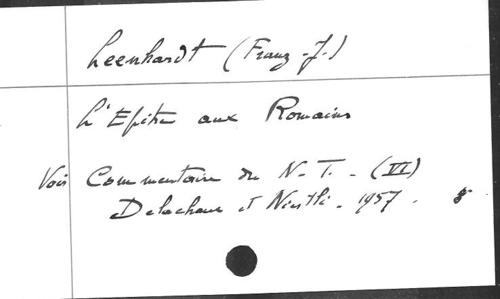 Leenhardt (Franz-J.)
L'Epitre aux Romains
Voir Commentaire du N.T. - (VI)
Delachaux et Niestlé - 1957.